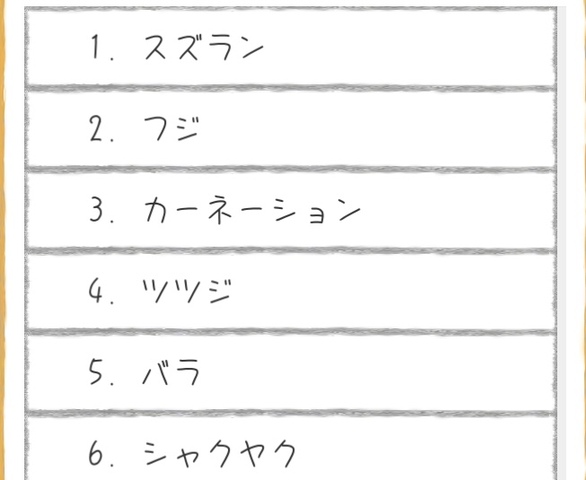 1. スズラン
2. フジ
3. カーネーション
4. ツツジ
5. バラ
6. シャクヤク